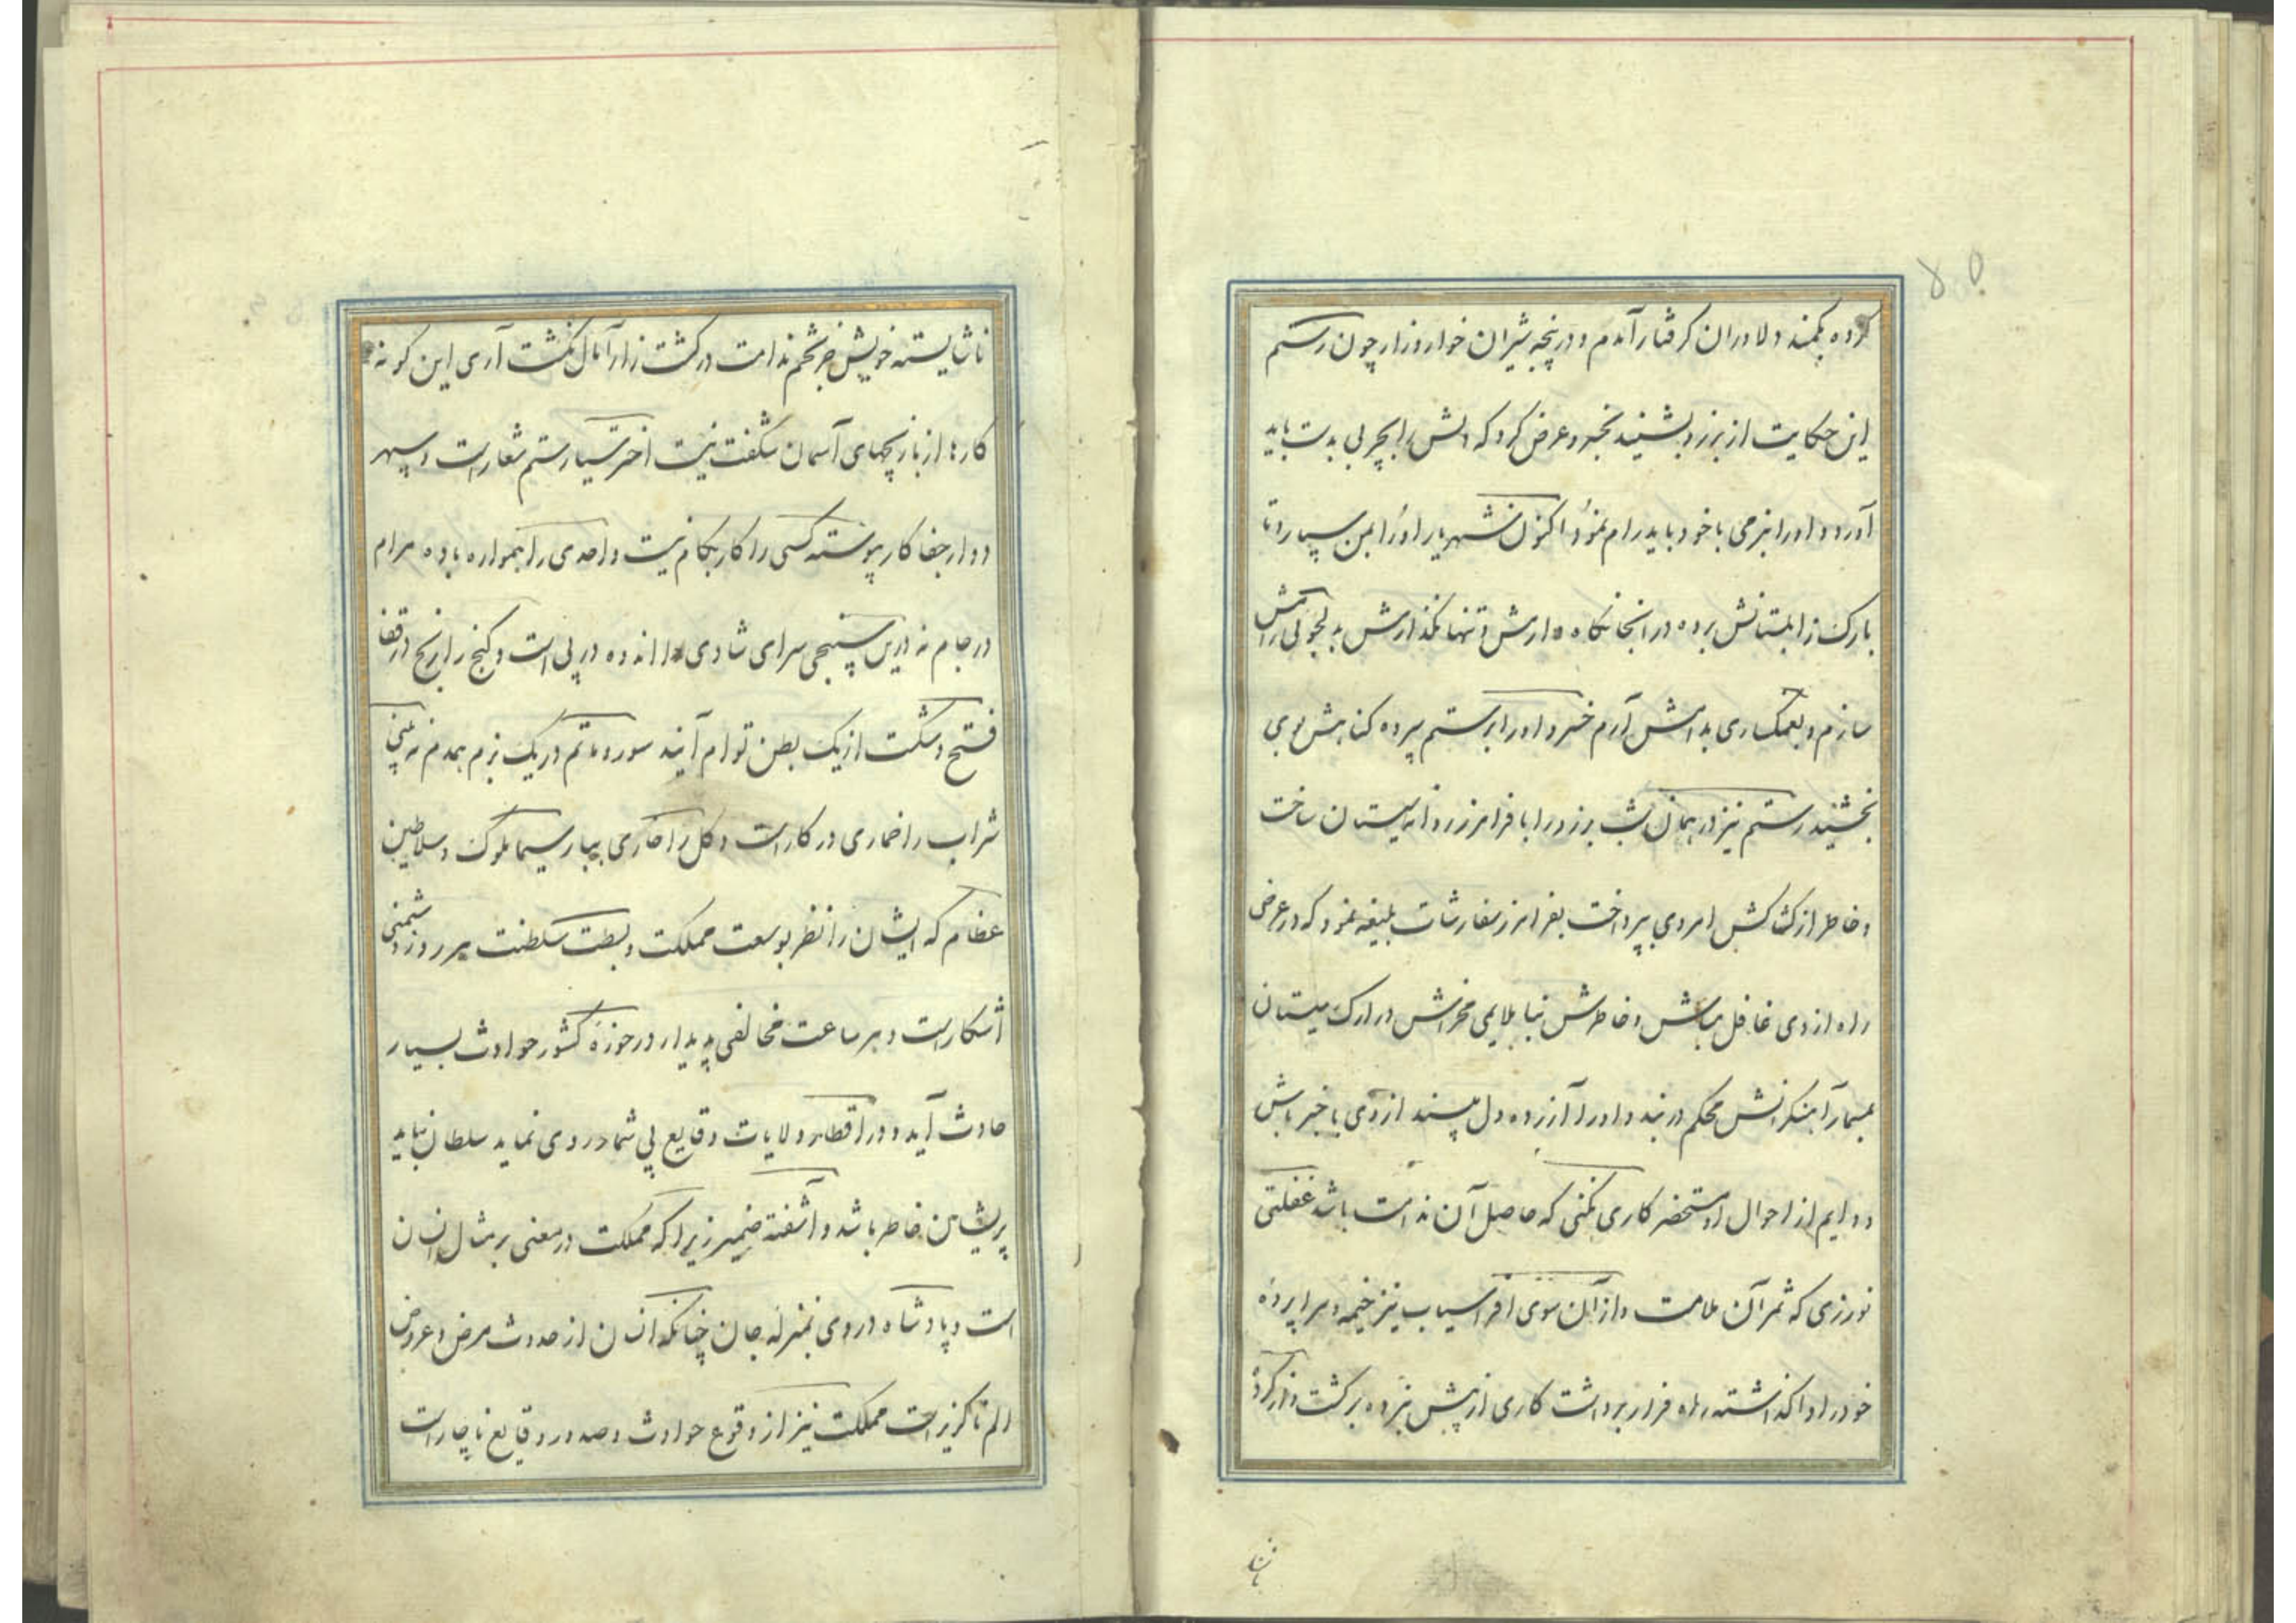 ۸۵
کرده بکمند دلاوران گرفتار آمدم و در پنجه شیران خوار و زار چون رستم
این حکایت از برزو بشنید بخسرو عرض کرد که دلش را بچربی بدست باید
آورد و او را بنرمی با خود باید رام نمود اکنون شهریار او را بمن سپارد تا
بارک زابلستانش برده در آنجا نگاه دارمش و تنها نگذارمش بدلجوئی رامش
سازم و بغمگساری بدامش آرم خسرو او را برستم سپرده گناهش بوی
بخشید رستم نیز در همان شب برزو را با فرامرز روانه سیستان ساخت
و خاطر از کشاکش امر وی بپرداخت بفرامرز سفارشات بلیغه نمود که در عرض
راه از وی غافل مباش و خاطرش بنا بلایمی مخراش در ارک سیستان
بمسمار آهنگرانش محکم در بند و او را آزرده دل مپسند از وی با خبر باش
و دایم از احوال او مستحضر کاری نکنی که حاصل آن ندامت باشد غفلتی
نورزی که ثمر آن ملامت و از آن سوی افراسیاب نیز خیمه و سراپرده
خود را واگذاشته راه فرار برداشت کاری از پیش نبرده برگشت و از کرده
ناشایسته
ناشایسته خویش جز تخم ندامت در کشت زار آمال نکشت آری این گونه
کارها از بازیچهای آسمان شگفت نیست اختر سیار ستم شعار است و سپهر
دوار جفا کار پیوسته کسی را کار بکام نیست و احدی را همواره باده مرام
در جام نه درین سپنجی سرای شادی را اندوه در پی است و گنج را رنج در قفا
فتح و شکست از یک بطن توام آیند سور و ماتم در یک بزم همدم نه بینی
شراب را خماری در کار است و گل را خاری بیار سیما ملوک و سلاطین
عظام که ایشان را نظر بوسعت مملکت و بسطت سلطنت هر روز دشمنی
آشکار است و هر ساعت مخالفی پدیدار در حوزه کشور حوادث بسیار
حادث آید و در اقطار ولایات وقایع بی شمار روی نماید سلطان نباید
پریشان خاطر باشد و آشفته ضمیر زیرا که مملکت در معنی بر مثال انسان
است و پادشاه در وی بمنزله جان چنانکه انسان از حدوث مرض و عروض
الم ناگزیر است مملکت نیز از وقوع حوادث و صدور وقایع ناچار است